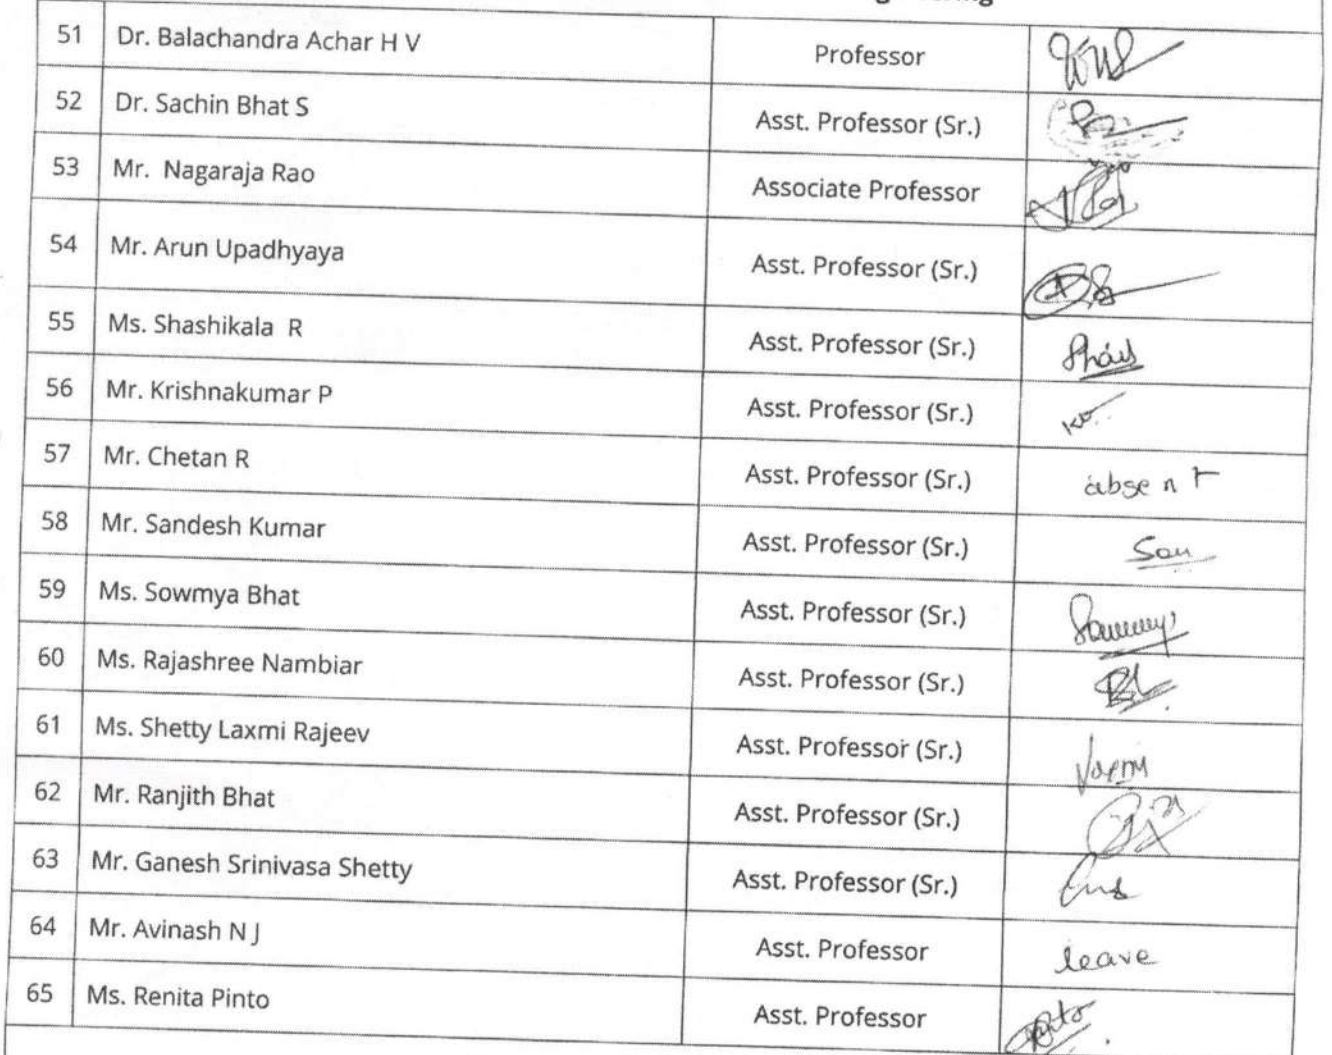 51 Dr. Balachandra Achar H V Professor
52 Dr. Sachin Bhat S Asst. Professor (Sr.)
53 Mr. Nagaraja Rao Associate Professor
54 Mr. Arun Upadhyaya Asst. Professor (Sr.)
55 Ms. Shashikala R Asst. Professor (Sr.)
56 Mr. Krishnakumar P Asst. Professor (Sr.)
57 Mr. Chetan R Asst. Professor (Sr.) absent
58 Mr. Sandesh Kumar Asst. Professor (Sr.)
59 Ms. Sowmya Bhat Asst. Professor (Sr.)
60 Ms. Rajashree Nambiar Asst. Professor (Sr.)
61 Ms. Shetty Laxmi Rajeev Asst. Professor (Sr.)
62 Mr. Ranjith Bhat Asst. Professor (Sr.)
63 Mr. Ganesh Srinivasa Shetty Asst. Professor (Sr.)
64 Mr. Avinash N J Asst. Professor leave
65 Ms. Renita Pinto Asst. Professor